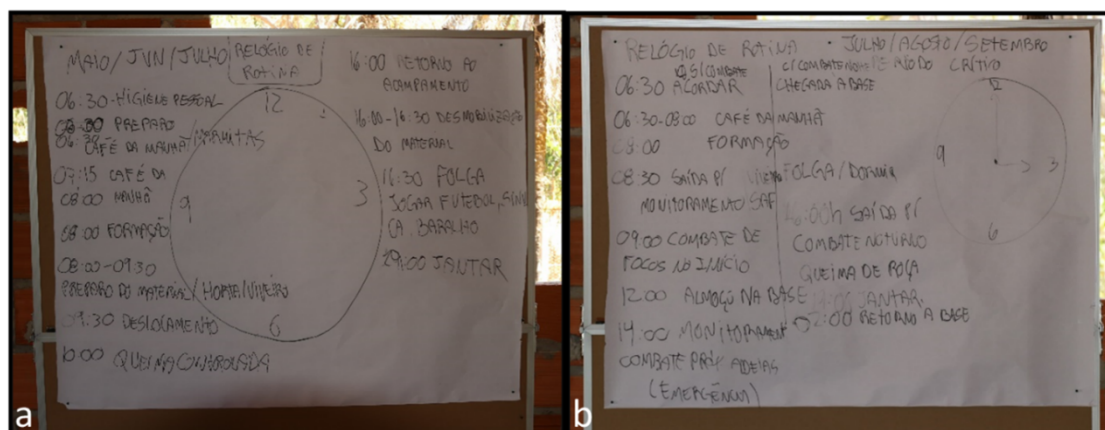 MAIO/JUN/JULHO
RELÓGIO DE
ROTINA
06:30-HIGIENE PESSOAL
06:30 PREPARO
CAFÉ DA MANHÃ/MARMITAS
07:15 CAFÉ DA
08:00 MANHÃ
08:00 FORMAÇÃO
08:00-09:30
PREPARO DO MATERIAL/HORTA/VIVEIRO
09:30 DESLOCAMENTO
10:00 QUEIMA CONTROLADA
12
3
6
9
16:00 RETORNO AO
ACAMPAMENTO
16:00-16:30 DESMOBILIZAÇÃO
DO MATERIAL
16:30 FOLGA
JOGAR FUTEBOL, SINU
CA, BARALHO
JANTAR
a
RELÓGIO DE ROTINA • JULHO/AGOSTO/SETEMBRO
S/COMBATE
06:30 ACORDAR
06:30-08:00 CAFÉ DA MANHÃ
08:00 FORMAÇÃO
08:30 SAÍDA P/
MONITORAMENTO SAF
09:00 COMBATE DE
FOCOS NO INÍCIO
12:00 ALMOÇO NA BASE
14:00 MONITORAMENT
COMBATE PRÓX ALDEIAS
(EMERGÊNCIA)
C/COMBATE CRÍTICO
CHEGADA A BASE
FOLGA/DORMIR
SAÍDA P/
COMBATE NOTURNO
QUEIMA DE ROÇA
JANTAR
02:00 RETORNO A BASE
12
3
6
9
b